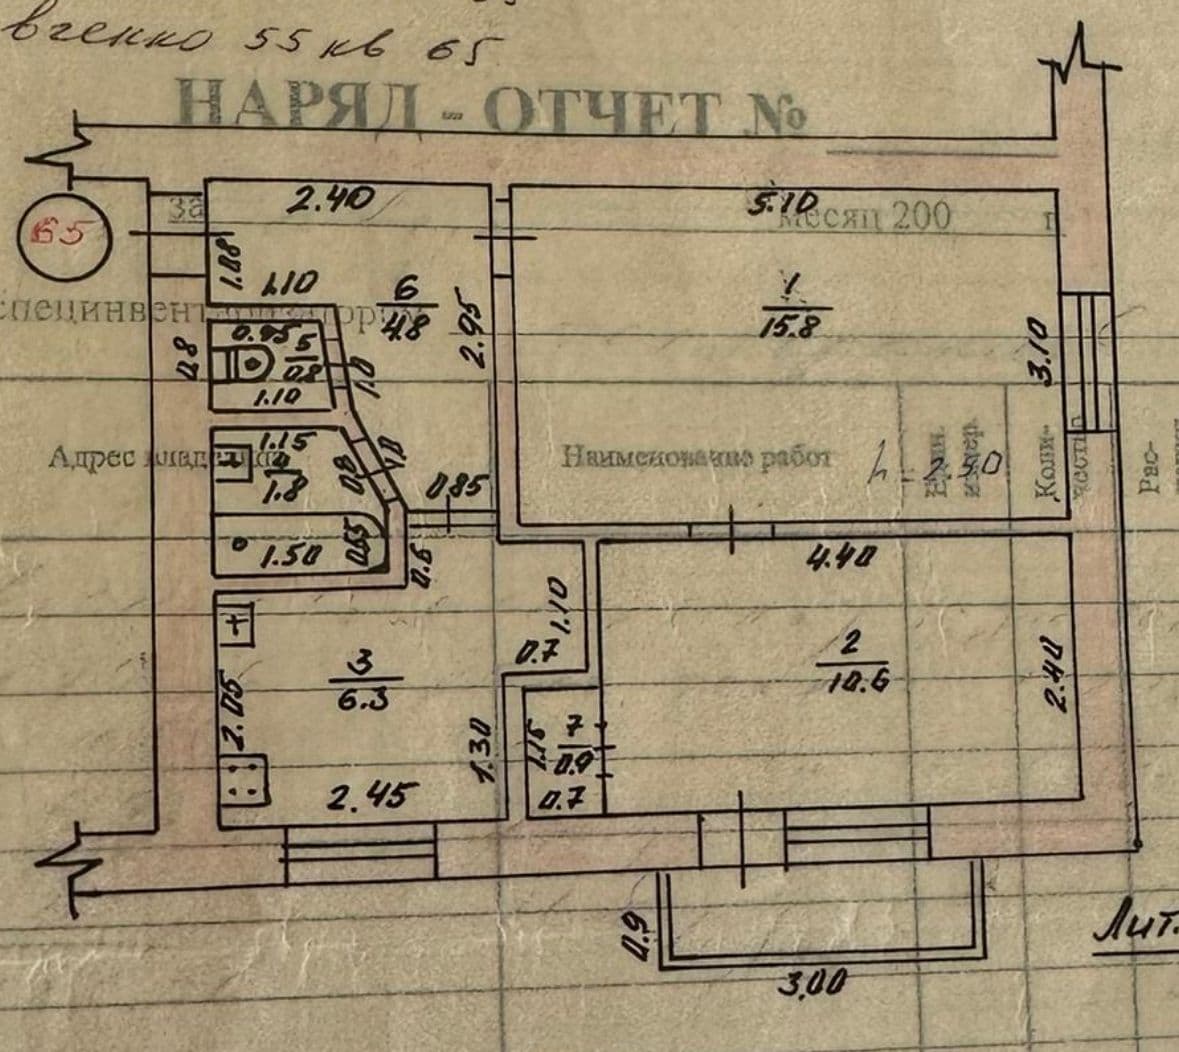 вченко 55 кв 65
НАРЯД - ОТЧЕТ №
за
месяц 200 г
65
2.40
5.10
1.08
1.10
6
4.8
2.95
1
15.8
3.10
специнвен
0.8
0.95
5
0.8
1.0
1.10
Адрес владельца
1.15
4
1.8
0.8
1.0
Наименование работ
h = 2.50
Един. измер.
Коли-
чество
Рас-
0.85
1.50
0.65
0.6
4.40
1.10
0.7
2
10.6
2.40
3
6.3
2.05
1.30
1.15
7
0.9
0.7
2.45
0.9
3.00
Лит.